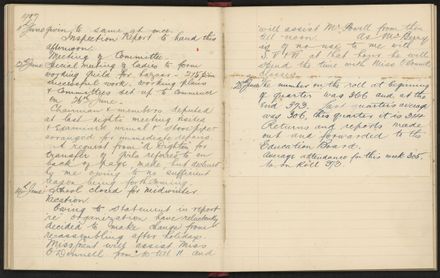 1927
June giving to same at once.
Inspection Report to hand this
afternoon.
Meeting of Committee.
Special meeting of Ladies to form
working Guild for bazaar - 2.15 p.m.
successful work. working plans
& Committees set up to commence
on 26th June.
Chairman & members deputed
at last nights meeting visited
& examined manual & Stove pipe
arranged for immediate repairs
A request from D Righton for
transfer of girls referred to on
back of page made but declined
by me owing to no sufficient
reason being forthcoming
School closed for midwinter
vacation.
Owing to statement in report
re organization have reluctantly
decided to make change from
reassembling after holidays.
Miss Jowett will assist Miss
O'Donnell from to till 11 and
will assist Mr. Powell from then
till noon. As Mr. Berry
is of no use to me with
S V & VI at that hour he will
spend the time with Miss O'Donnell
classes.
The number on the roll at beginning
of quarter was 366 and at the
end 373. Last quarter's average
was 306, this quarter it is 324
Returns and reports made
out and forwarded to the
Education Board.
Average attendance for this week 305.
No. on Roll 373